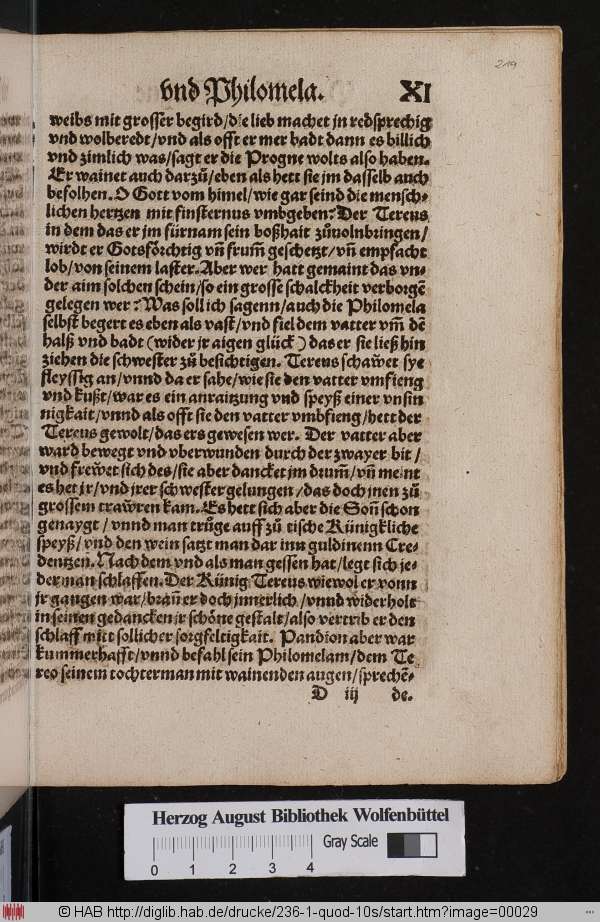 219
vnd Philomela. XI
weibs mit grosser begird/die lieb machet jn redsprechig
vnd wolberedt/vnd als offt er mer badt dann es billich
vnd zimlich was/sagt er die Progne wolts also haben.
Er wainet auch darzů/eben als hett sie jm dasselb auch
befolhen. O Gott vom himel/wie gar seind die mensch-
lichen hertzen mit finsternus vmbgeben? Der Tereus
in dem das er jm fürnam sein boßhait zůuolnbringen/
wirdt er Gotsförchtig vñ frum̃ geschetzt/vñ empfacht
lob/von seinem laster. Aber wer hatt gemaint das vn-
der aim solchen schein/so ein grosse schalckheit verborgẽ
gelegen wer? Was soll ich sagenn/auch die Philomela
selbst begert es eben als vast/vnd fiel dem vatter vm̃ dẽ
halß vnd badt (wider jr aigen glück) das er sie ließ hin
ziehen die schwester zů besichtigen. Tereus schawet sye
fleyssig an/vnnd da er sahe/wie sie den vatter vmfieng
vnd kußt/war es ein anraitzung vnd speyß einer vnsin
nigkait/vnnd als offt sie den vatter vmbfieng/hett der
Tereus gewolt/das ers gewesen wer. Der vatter aber
ward bewegt vnd vberwunden durch der zwayer bit/
vnd frewet sich des/sie aber dancket jm drum̃/vñ meint
es het jr/vnd jrer schwester gelungen/das doch jnen zů
grossem trawren kam. Es hett sich aber die Soñ schon
genaygt/vnnd man trůge auff zů tische Künigkliche
speyß/vnd den wein satzt man dar inn guldinenn Cre-
dentzen. Nach dem vnd als man gessen hat/legt sich je-
derman schlaffen. Der Künig Tereus wiewol er vonn
jr gangen war/brañ er doch jnnerlich/vnnd widerholt
in seinen gedancken jr schöne gestalt/also vertrib er den
schlaff mitt sollicher sorgfeltigkait. Pandion aber war
kummerhafft/vnnd befahl sein Philomelam/dem Te-
reo seinem tochterman mit wainenden augen/sprechẽ-
D iij de.
Herzog August Bibliothek Wolfenbüttel
Gray Scale
0 1 2 3 4
© HAB http://diglib.hab.de/drucke/236-1-quod-10s/start.htm?image=00029